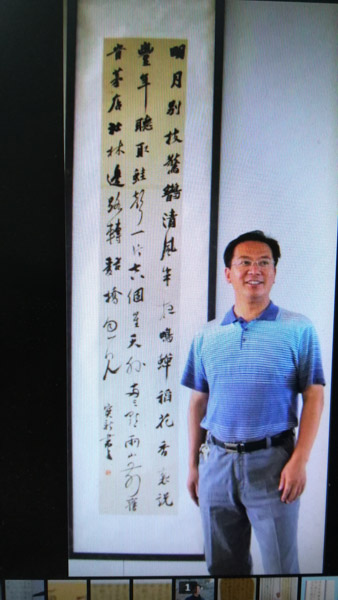 明月别枝驚鵲清風半夜鳴蟬稻花香裏説
豐年聽取蛙聲一片七八個星天外兩三點雨山前舊
旹茅店社林邊路轉谿橋忽見
1